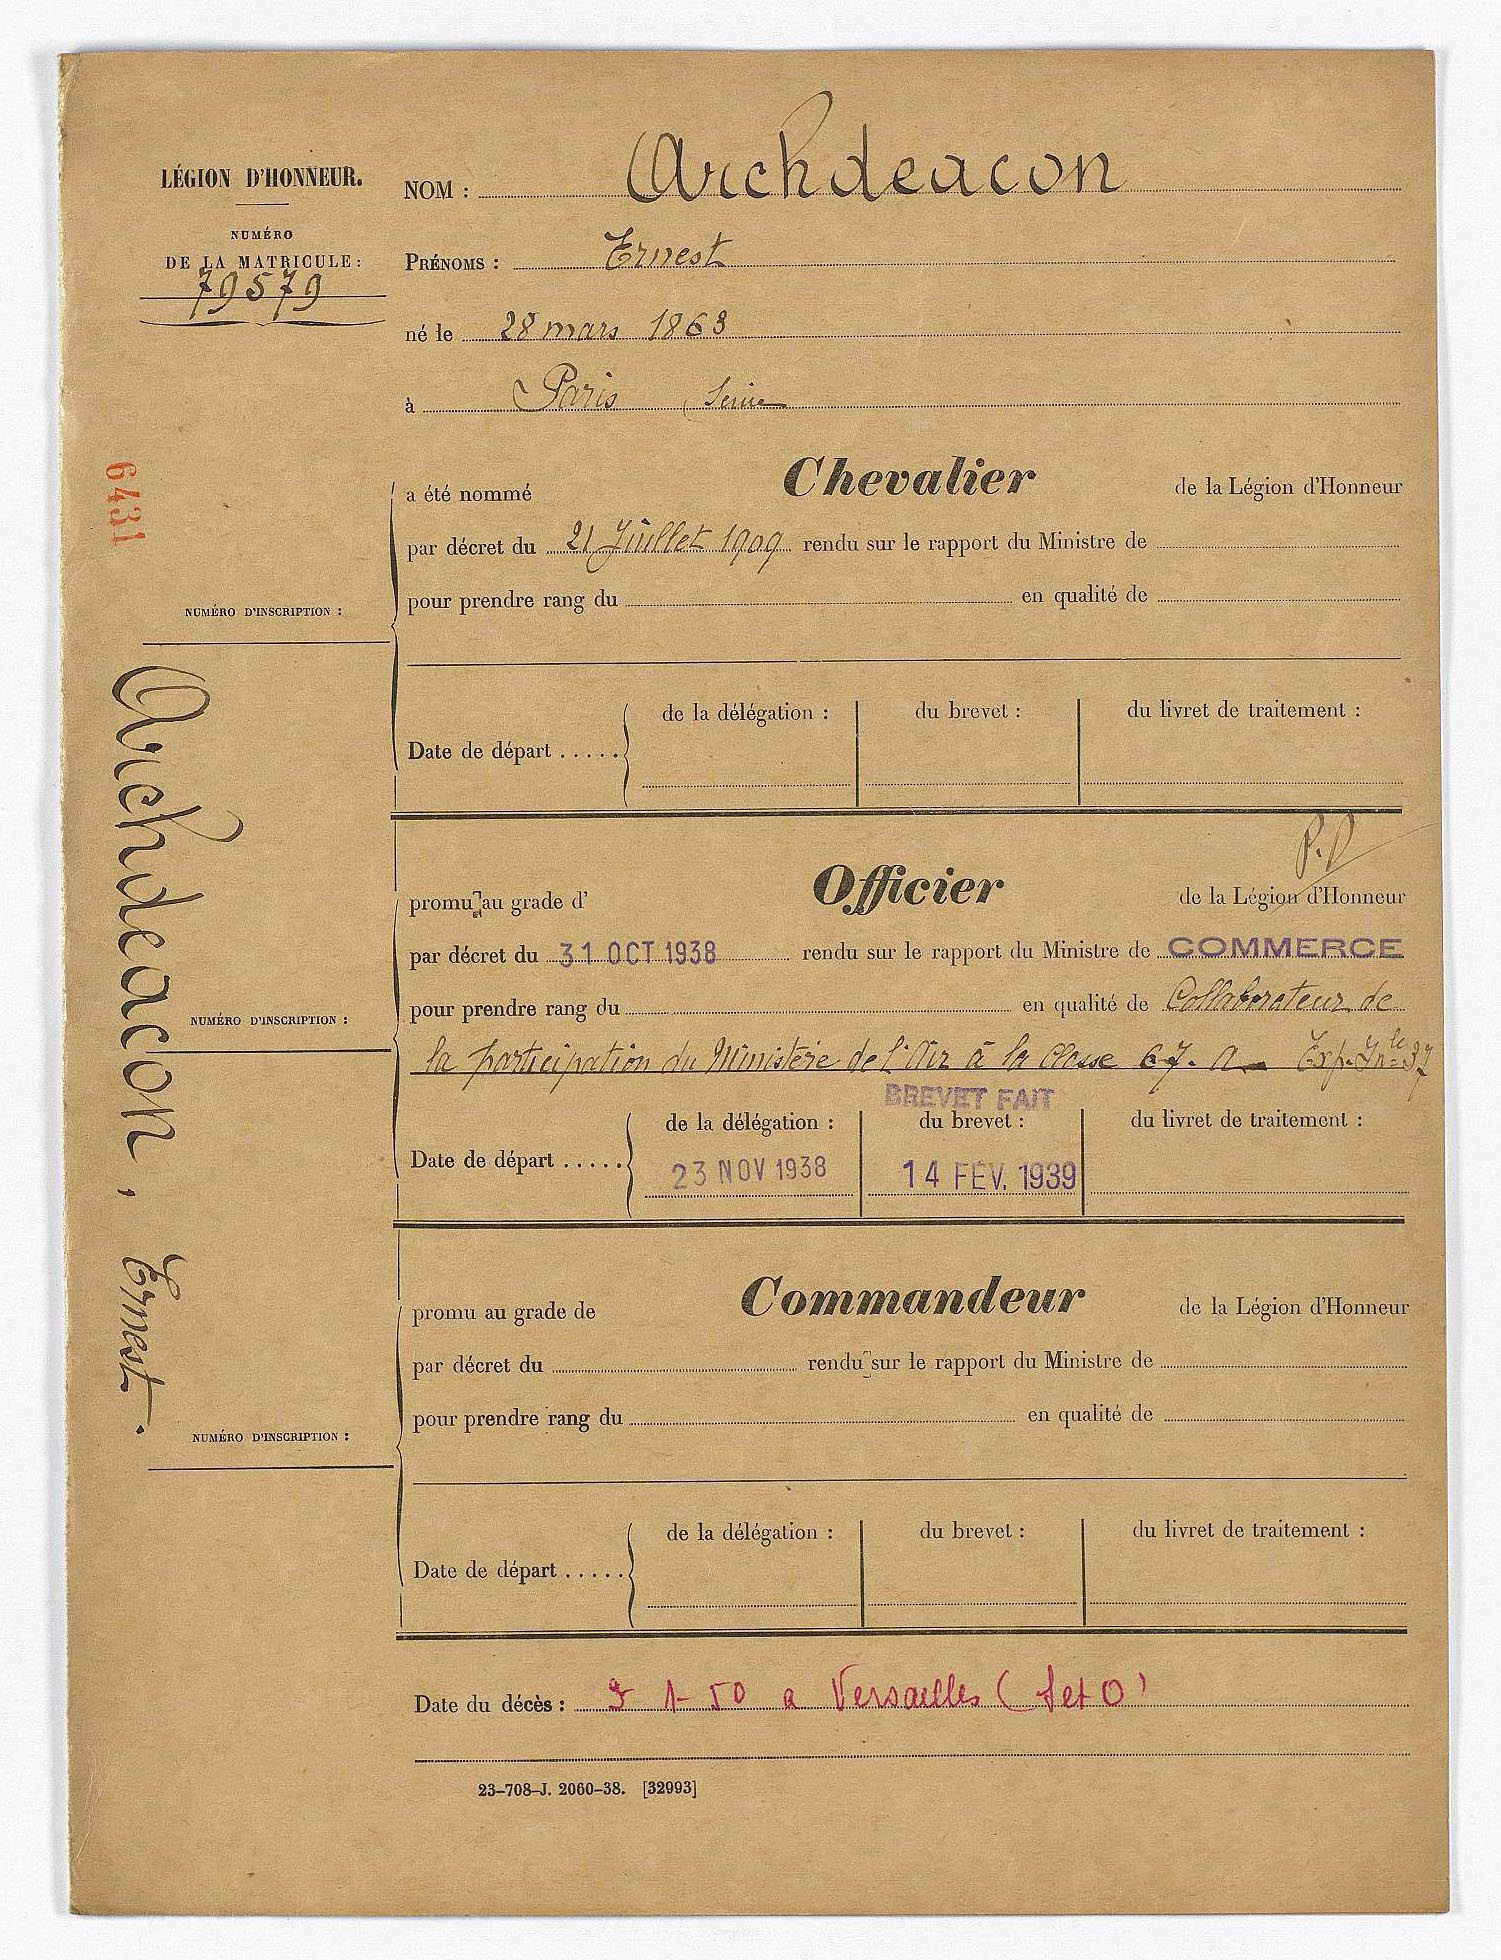 LÉGION D'HONNEUR.
NUMÉRO
DE LA MATRICULE :
79579
NOM : Archdeacon
PRÉNOMS : Ernest
né le 28 mars 1863
à Paris Seine
6431
a été nommé Chevalier de la Légion d'Honneur
par décret du 21 Juillet 1909 rendu sur le rapport du Ministre de
pour prendre rang du en qualité de
NUMÉRO D'INSCRIPTION :
de la délégation : du brevet : du livret de traitement :
Date de départ .....
Archdeacon, Ernest.
P.P
promu au grade d' Officier de la Légion d'Honneur
par décret du 31 OCT 1938 rendu sur le rapport du Ministre de COMMERCE
pour prendre rang du en qualité de Collaborateur de
NUMÉRO D'INSCRIPTION :
la participation du Ministère de l'Air à la Classe 67. A Exp. Inle 37
BREVET FAIT
de la délégation : du brevet : du livret de traitement :
Date de départ ..... 23 NOV 1938 14 FÉV. 1939
promu au grade de Commandeur de la Légion d'Honneur
par décret du rendu sur le rapport du Ministre de
pour prendre rang du en qualité de
NUMÉRO D'INSCRIPTION :
de la délégation : du brevet : du livret de traitement :
Date de départ .....
Date du décès : 1-50 a Versailles (S et O)
23-708-J. 2060-38. [32993]